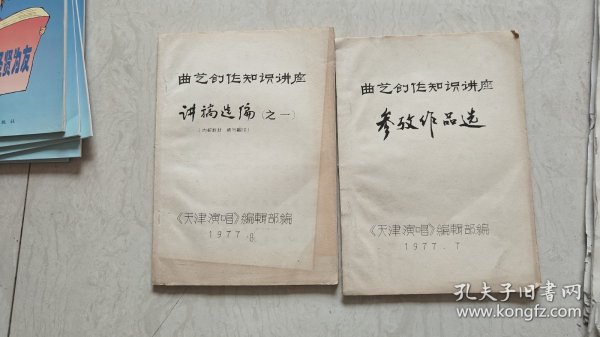 曲艺创作知识讲座
讲稿选编(之一)
《天津演唱》编辑部编
1977.8.
曲艺创作知识讲座
参考作品选
《天津演唱》編輯部編
1977.7
贤为友
孔夫子旧书网
www.kongfz.com